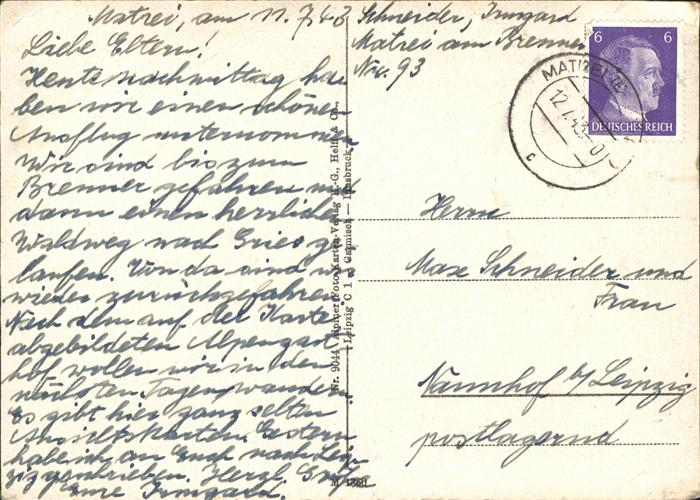 Matrei, am 11.7.43
Liebe Eltern!
Heute nachmittag ha
ben wir einen schönen
Ausflug unternommen
Wir sind bis zum
Brenner gefahren und
dann einen herrlichen
Waldweg nach Gries ge
laufen. Von da sind wir
wieder zurückgefahren
Nach dem auf der Karte
abgebildeten Alpengast
hof wollen wir in den
nächsten Tagen wandern.
Es gibt hier ganz selten
Ansichtskarten. Gestern
habe ich an Euch nach Leip
zig geschrieben. Herzl. Grüße
Eure Irmgard.
Nr. 9044 Alpiner Foto-Karten-Verlag A.-G., Helff & Co.,
Leipzig C 1 — Garmisch — Innsbruck
M 1260
Schneider, Irmgard
Matrei am Brenner
Nr. 93
6 6
DEUTSCHES REICH
MATREI
12.7.43
c
Herrn
Max Schneider und
Frau
Naunhof b/Leipzig
postlagernd